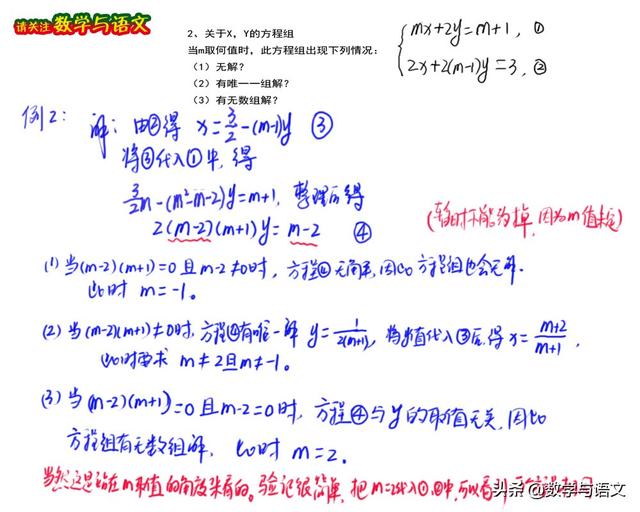 请关注 数学与语文
2、关于X，Y的方程组
当m取何值时，此方程组出现下列情况：
（1）无解？
（2）有唯一一组解？
（3）有无数组解？
mx+2y=m+1, ①
2x+2(m-1)y=3, ②
例2：
解：由②得 x=3/2-(m-1)y ③
将③代入①中，得
3/2m-(m²-m-2)y=m+1, 整理后得
2(m-2)(m+1)y=m-2 ④
(暂时不能约掉，因为m值未定)
(1) 当(m-2)(m+1)=0且m-2≠0时，方程④无解，因此方程组也会无解.
此时 m=-1。
(2) 当(m-2)(m+1)≠0时，方程④有唯一解 y=1/2(m+1), 将y值代入③后，得 x=m+2/m+1,
此时要求 m≠2且m≠-1。
(3) 当(m-2)(m+1)=0且m-2=0时，方程④与y的取值无关，因此
方程组有无数组解，此时 m=2。
当然这是站在m取值的角度来看的。验证很简单，把m=2代入①、②中，可以看
头条 @数学与语文